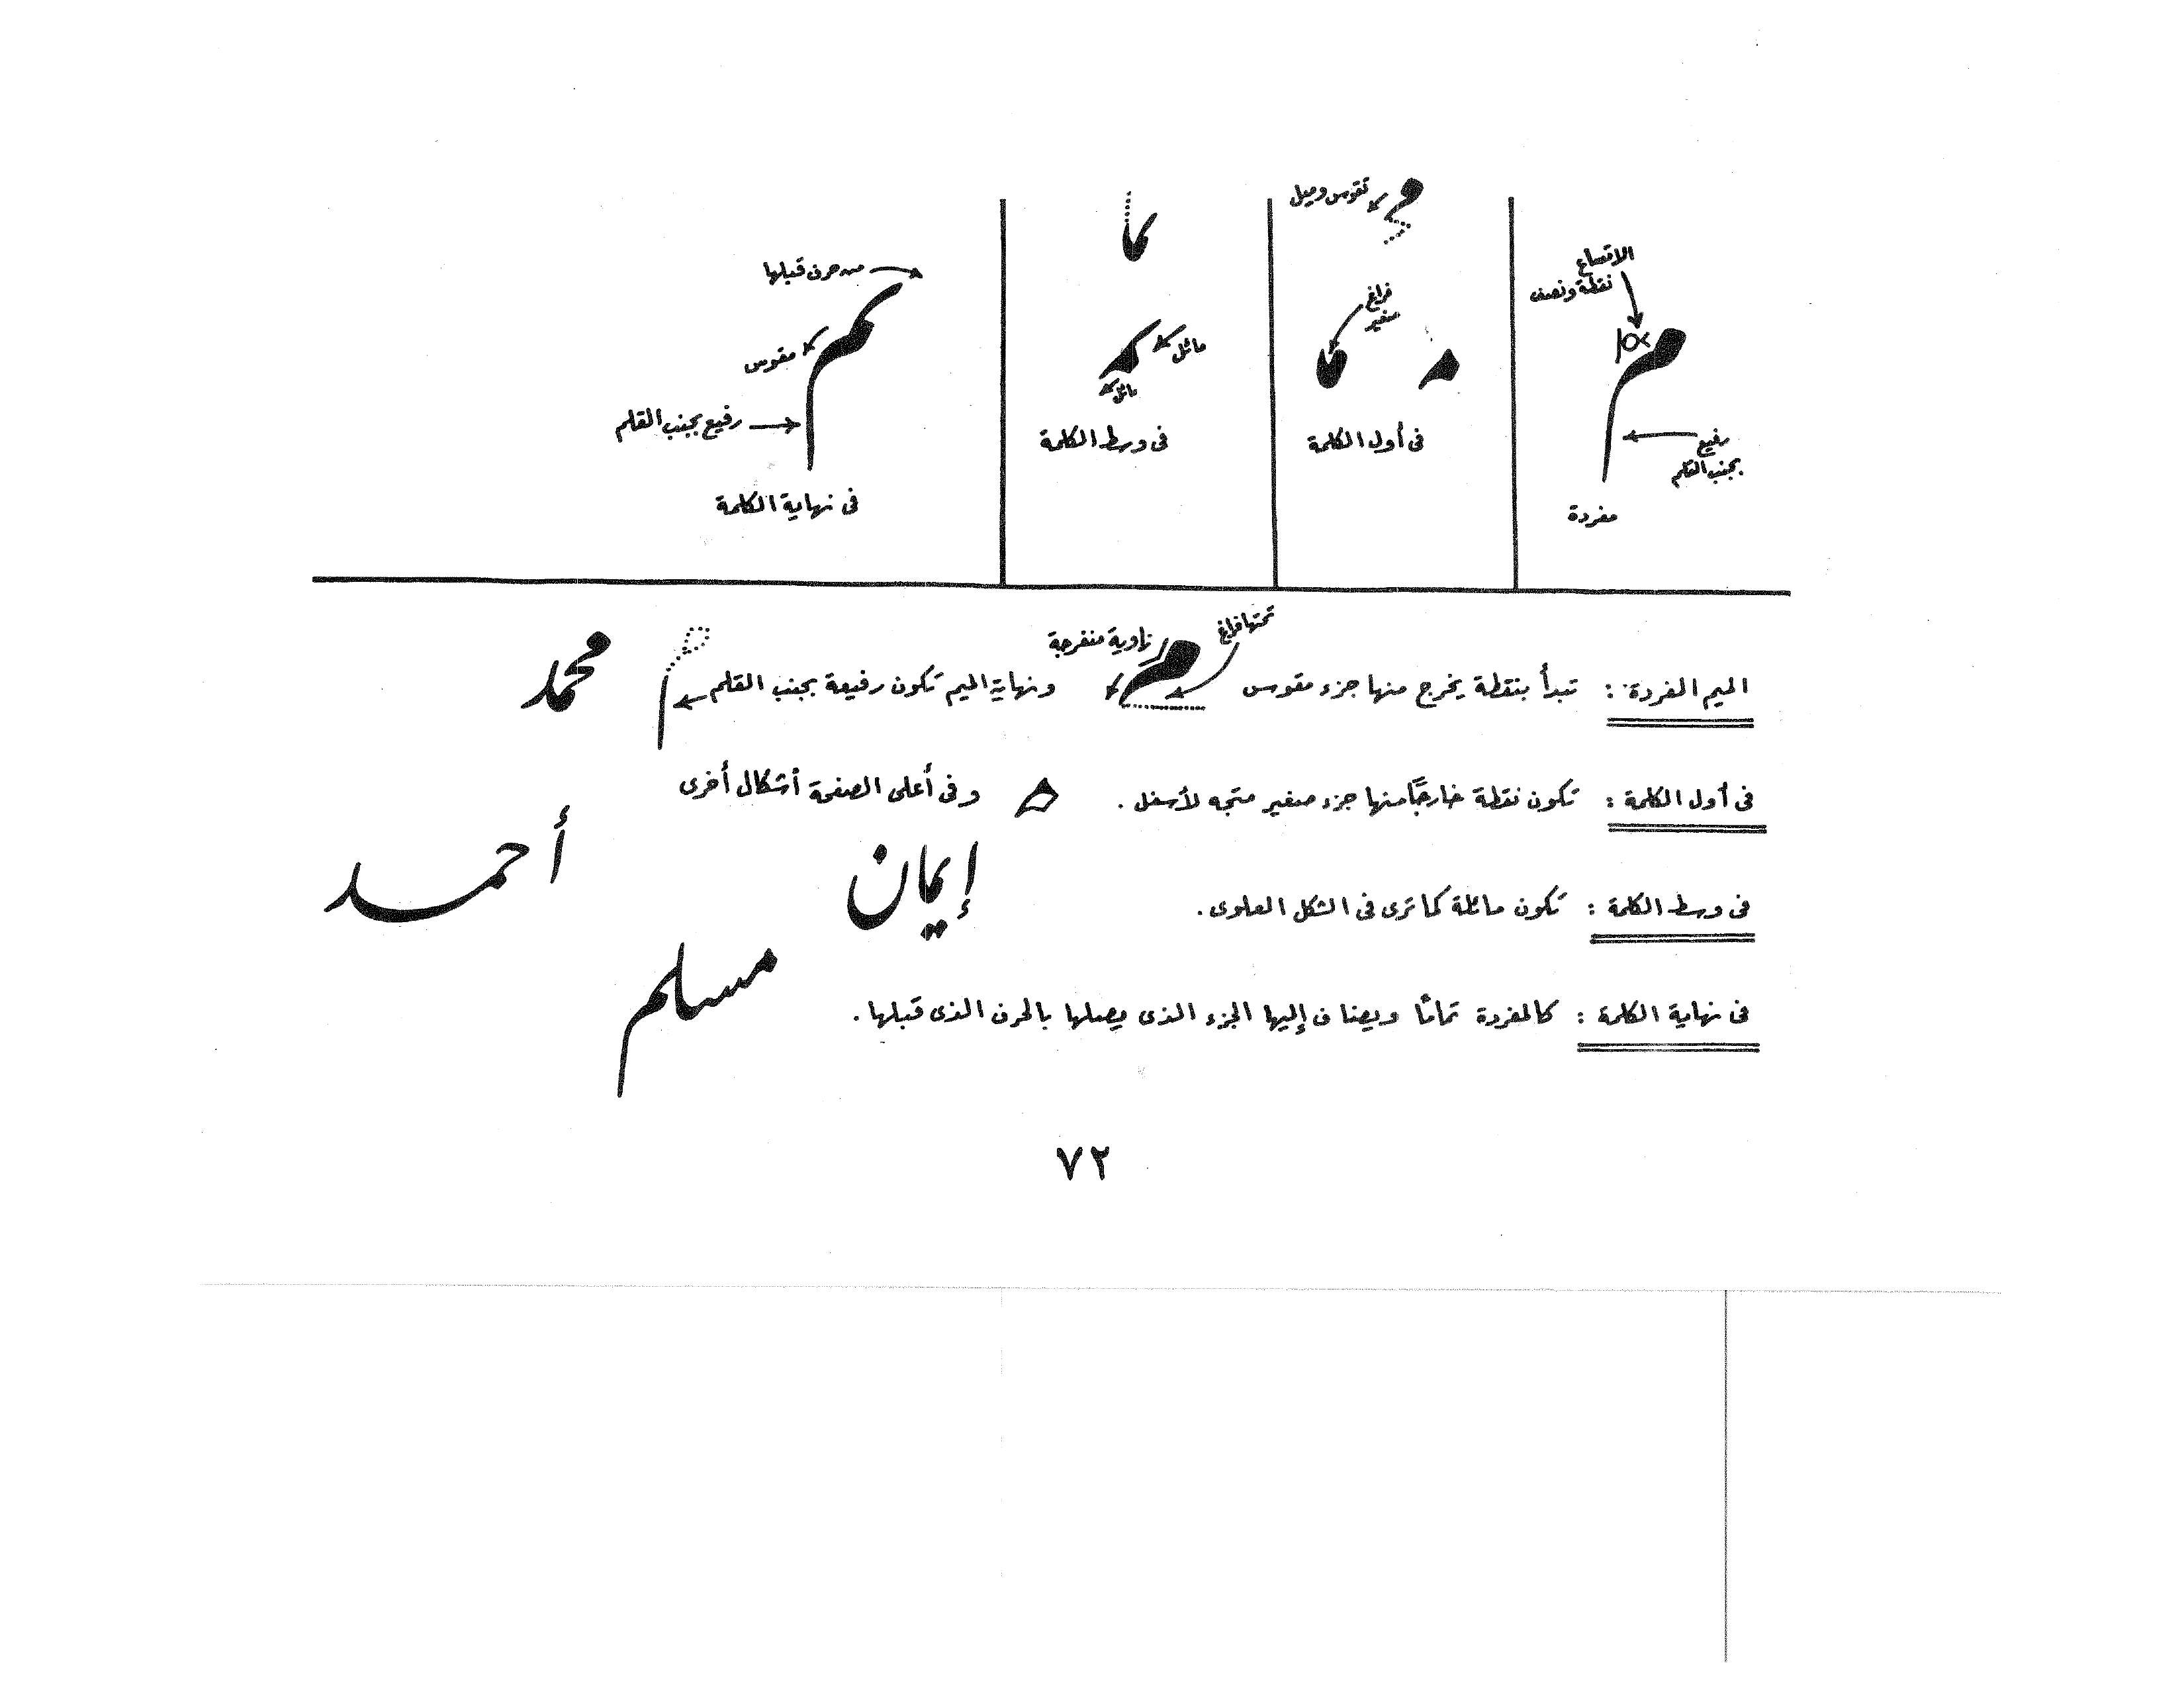 الاتساع
نقطة ونصف
م
رفيع
بجنب القلم
مفردة
تقوس وميل
فراغ
صغير
فى أول الكلمة
مائل
مائل
فى وسط الكلمة
من حرف قبلها
مقوس
رفيع بجنب القلم
فى نهاية الكلمة
تحتها فراغ
زاوية منفرجة
الميم المفردة : تبدأ بنقطة يخرج منها جزء مقوس م ونهاية الميم تكون رفيعة بجنب القلم
محمد
فى أول الكلمة : تكون نقطة خارجًا منها جزء صغير متجه لأسفل . وفى أعلى الصفحة أشكال أخرى
فى وسط الكلمة : تكون مائلة كما ترى فى الشكل العلوى .
إيمان
أحمد
فى نهاية الكلمة : كالمفردة تمامًا ويضاف إليها الجزء الذى يصلها بالحرف الذى قبلها .
مسلم
٧٢